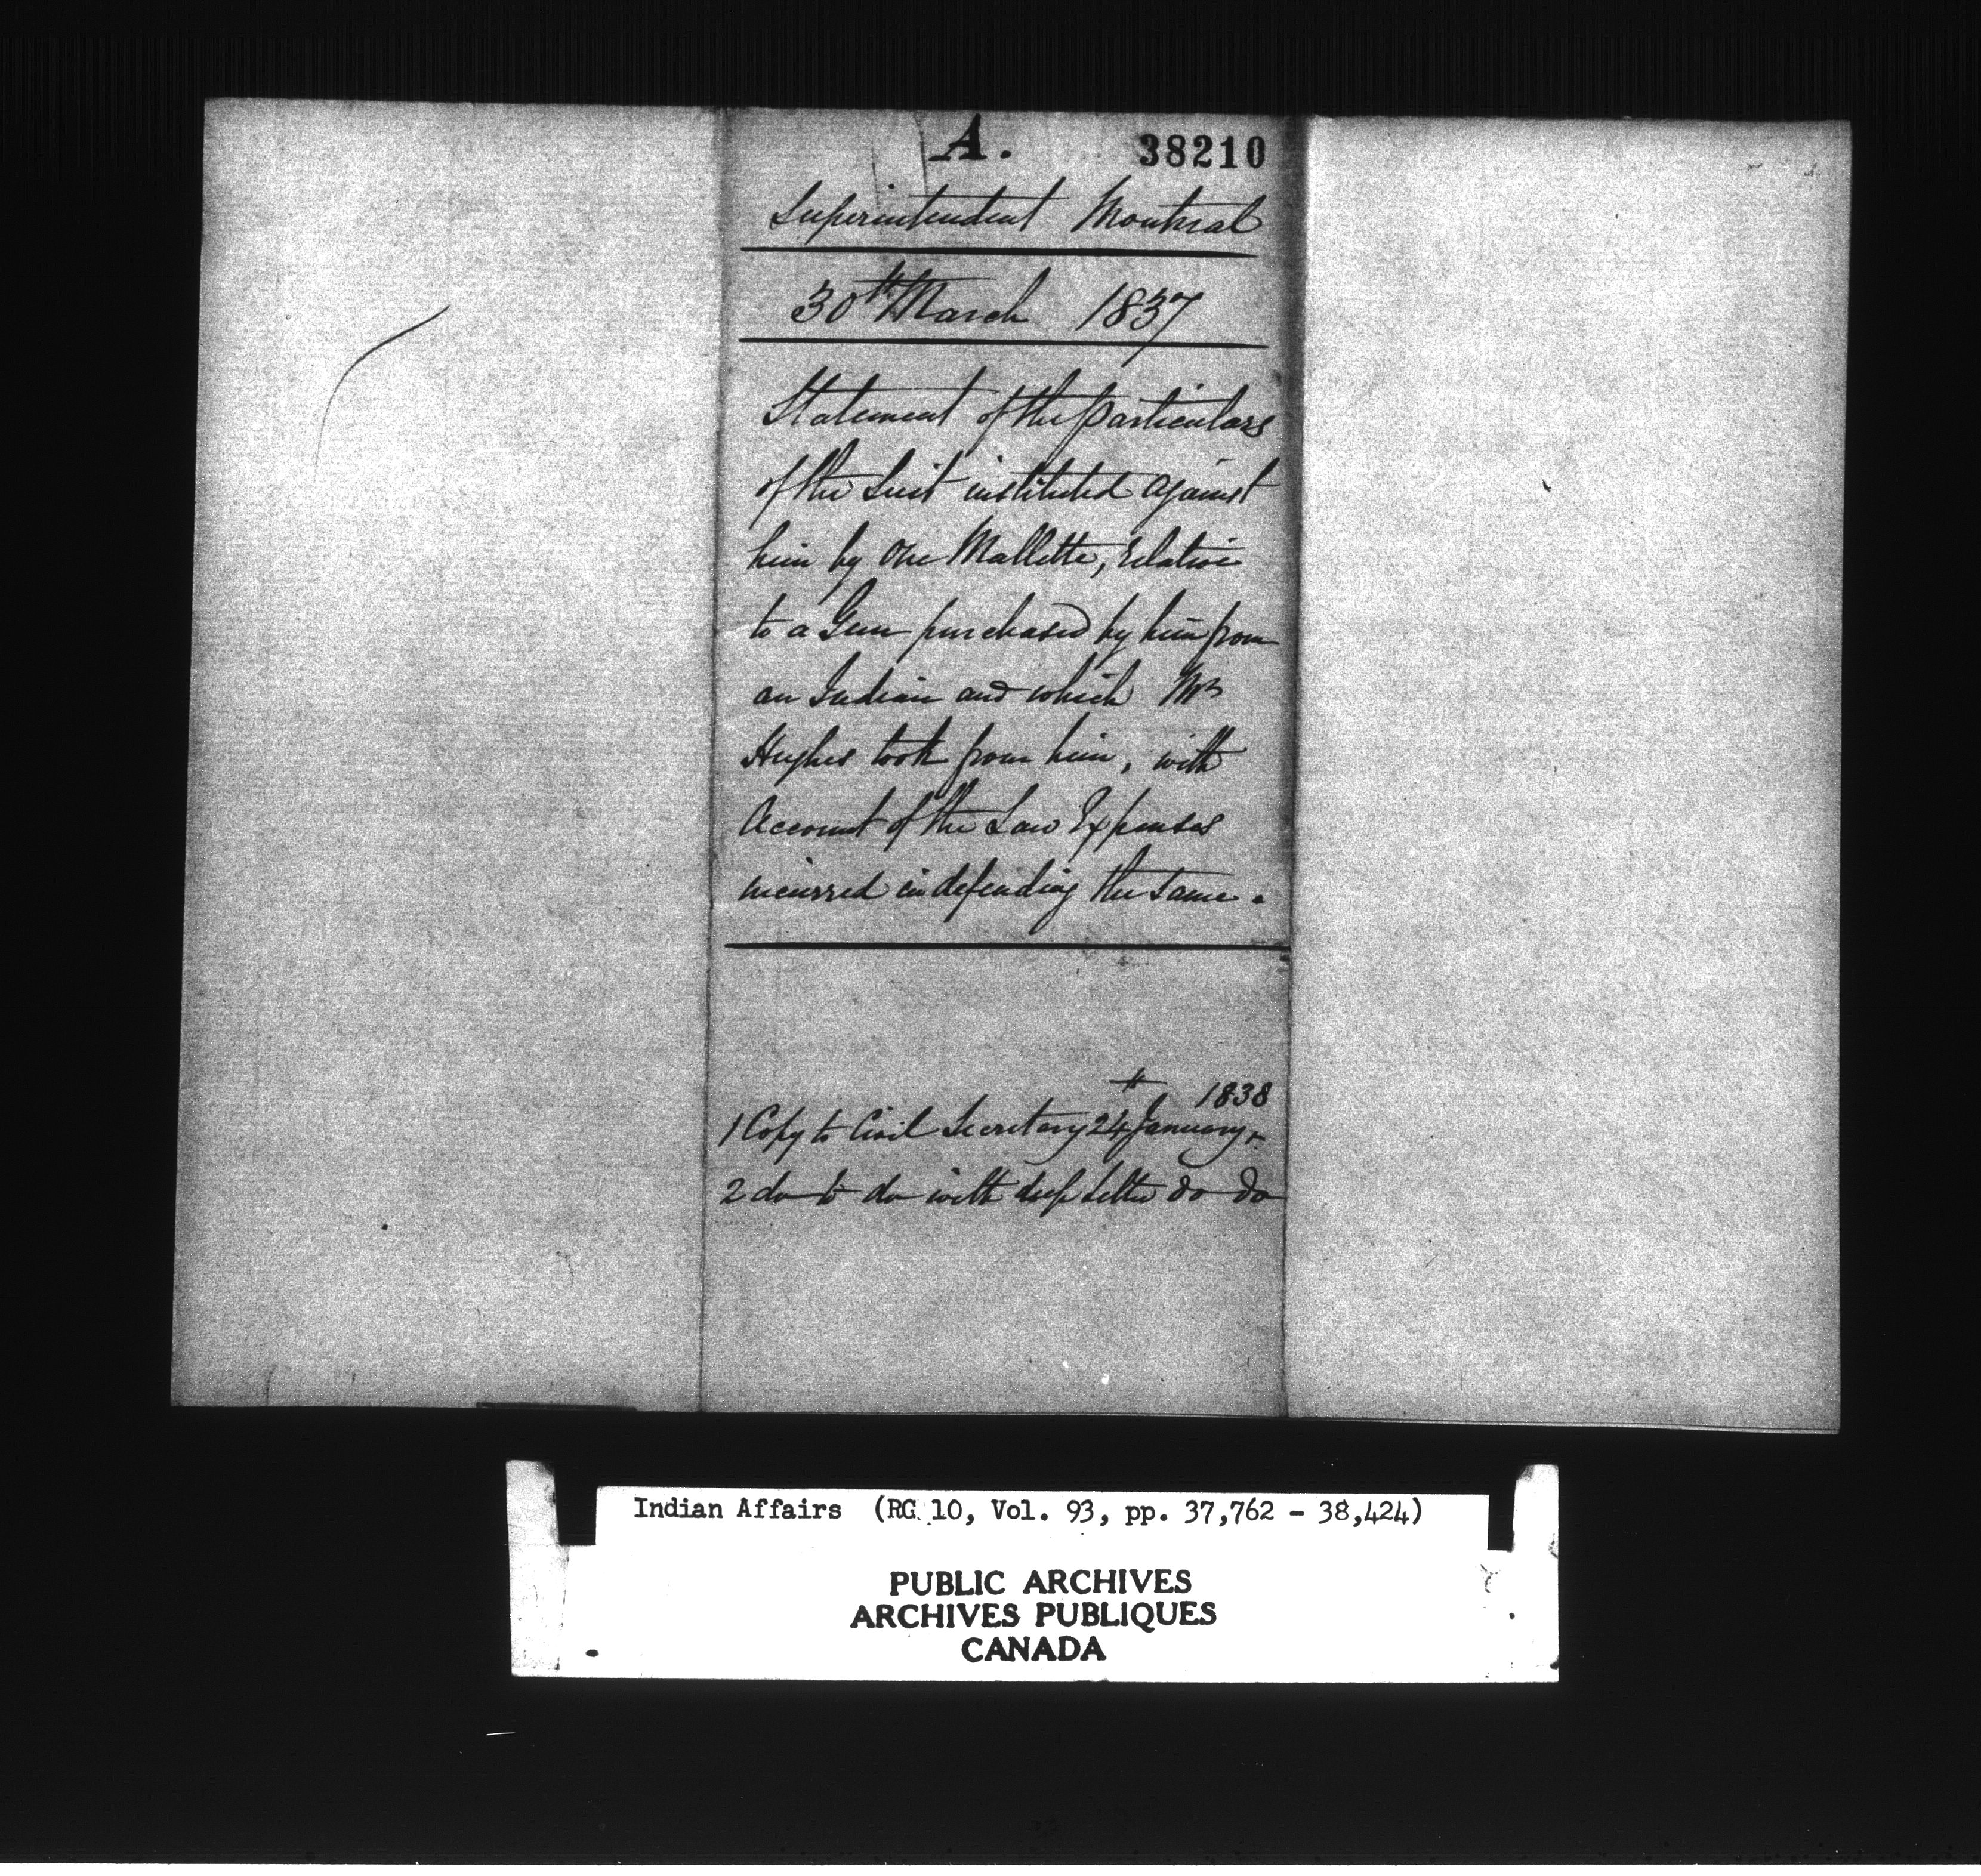 A. 38210
Superintendent Montreal
30th March 1837
Statement of the particulars
of the Suit instituted against
him by one Mallette, relative
to a Gun purchased by him from
an Indian and which Mr
Hughes took from him, with
Account of the Law Expenses
incurred in defending the same.
1838
1 Copy to Civil Secretary 24th January
2 do to do with letter do do
Indian Affairs (RG 10, Vol. 93, pp. 37,762 - 38,424)
PUBLIC ARCHIVES
ARCHIVES PUBLIQUES
CANADA